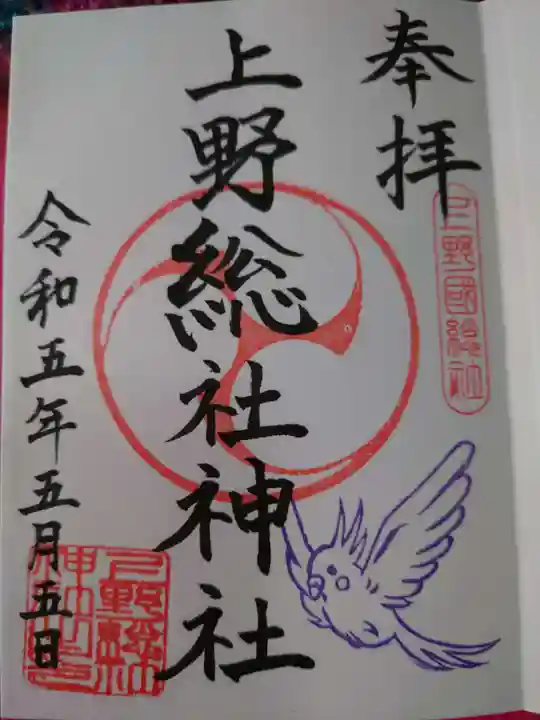 奉拝
上野國総社
上野総社神社
令和五年五月五日